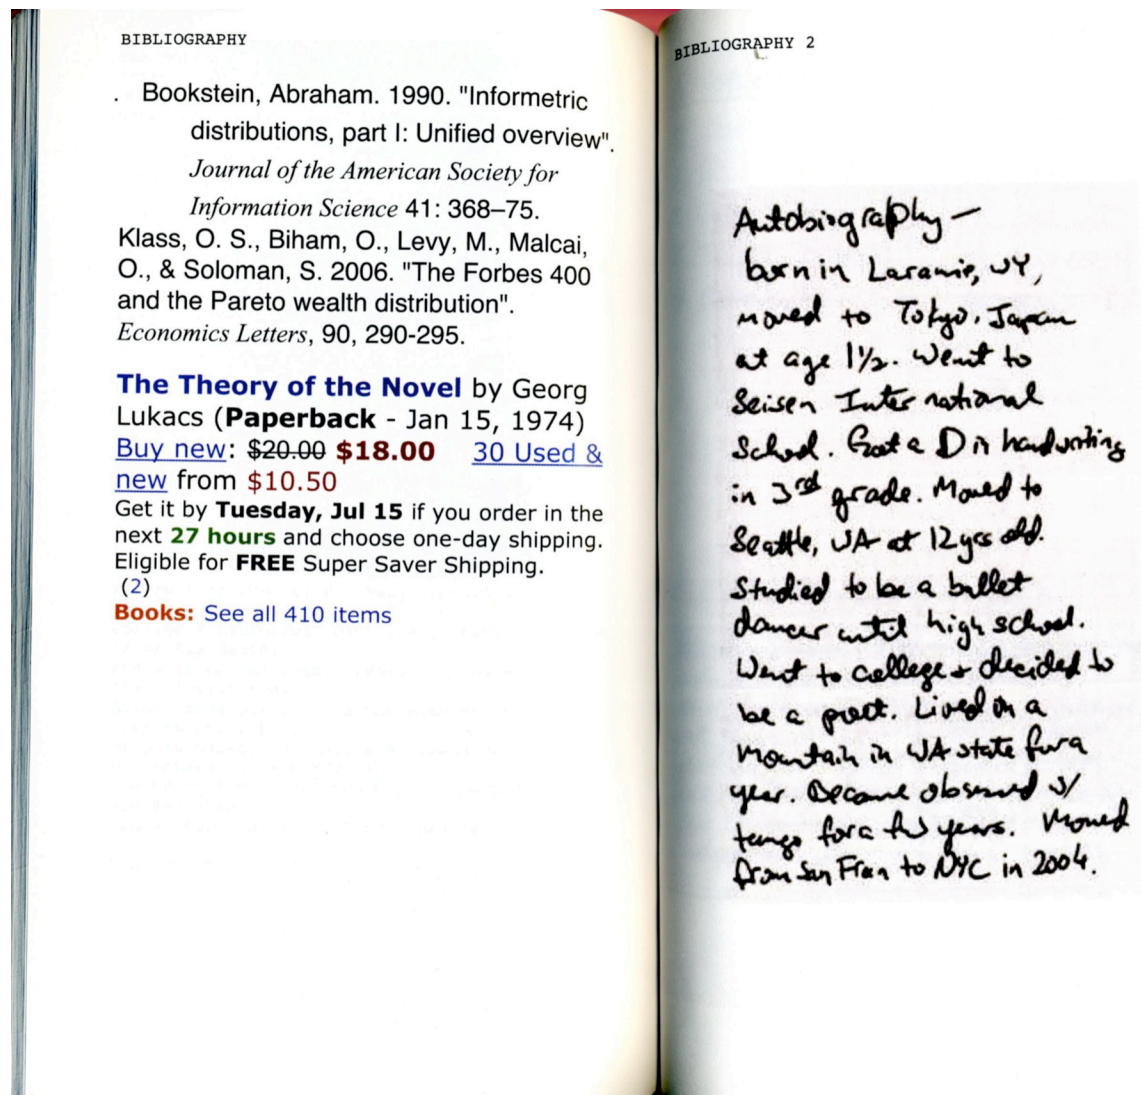 BIBLIOGRAPHY
. Bookstein, Abraham. 1990. "Informetric
distributions, part I: Unified overview".
Journal of the American Society for
Information Science 41: 368–75.
Klass, O. S., Biham, O., Levy, M., Malcai,
O., & Soloman, S. 2006. "The Forbes 400
and the Pareto wealth distribution".
Economics Letters, 90, 290-295.
The Theory of the Novel by Georg
Lukacs (Paperback - Jan 15, 1974)
Buy new: $20.00 $18.00 30 Used &
new from $10.50
Get it by Tuesday, Jul 15 if you order in the
next 27 hours and choose one-day shipping.
Eligible for FREE Super Saver Shipping.
(2)
Books: See all 410 items
BIBLIOGRAPHY 2
Autobiography –
born in Laramie, WY,
moved to Tokyo, Japan
at age 1½. Went to
Seisen International
School. Got a D in handwriting
in 3rd grade. Moved to
Seattle, WA at 12 yrs old.
Studied to be a ballet
dancer until high school.
Went to college + decided to
be a poet. Lived on a
mountain in WA state for a
year. Became obsessed w/
tango for a few years. Moved
from San Fran to NYC in 2004.